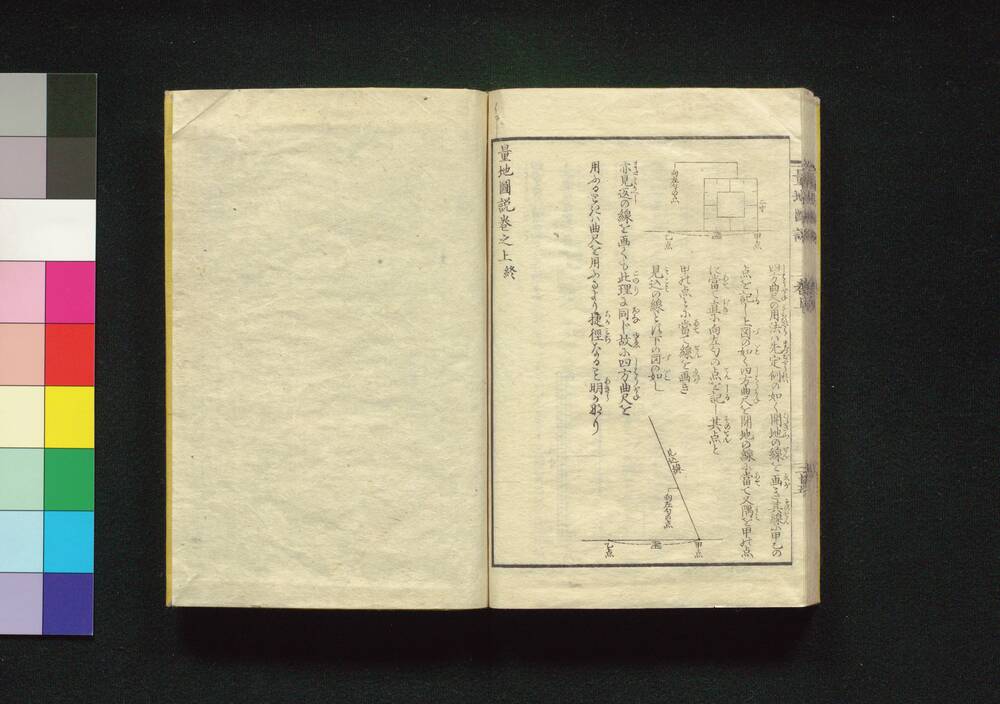 四方曲尺の用法ハ先定例の如く開地の線を画き其線ニ甲乙の
点を記し上図の如く四方曲尺を開地の線ニ當て又隅を甲の点
に當て真ニ向左右の点を記し其点と
甲の点とニ當て線を画き
見込の線とス下の図の如し
甲点
乙点
二寸
向左右の点
見込線
向左右の点
甲点
乙点
亦見返の線を画くも此理に同じ故ニ四方曲尺を
用ふるときハ曲尺を用ふるより捷徑なること明か也
量地圖説巻之上終
量地圖説